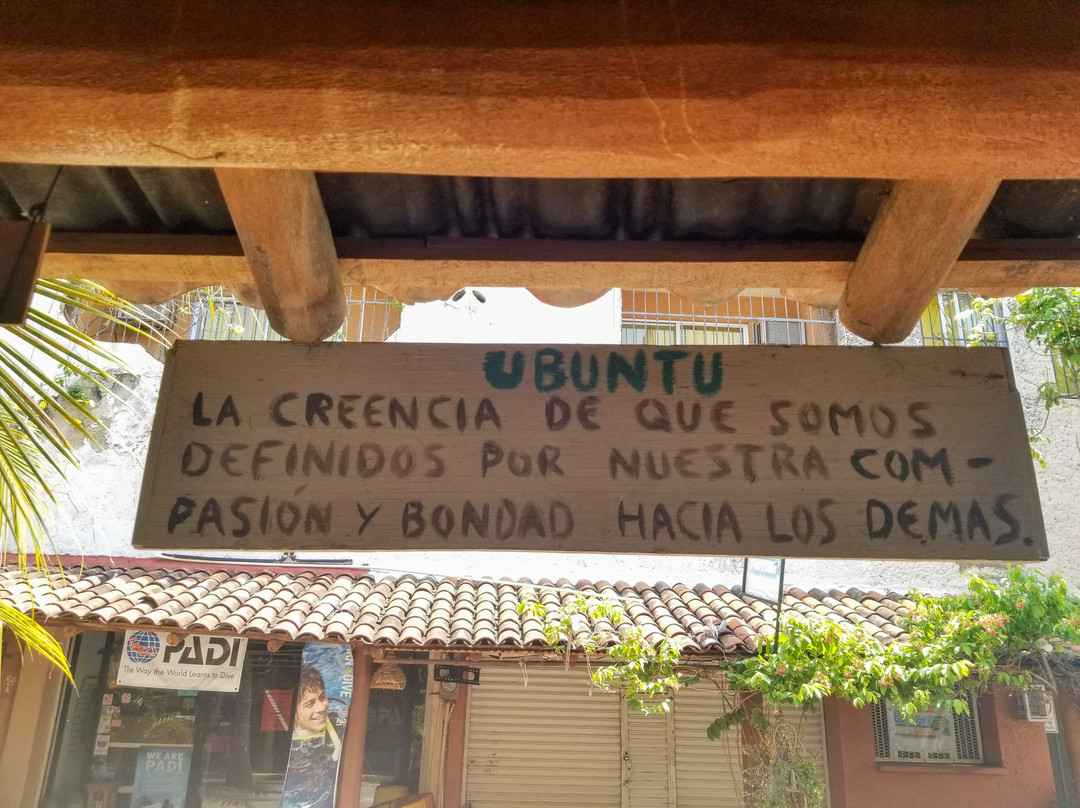 UBUNTU
LA CREENCIA DE QUE SOMOS
DEFINIDOS POR NUESTRA COM-
PASIÓN Y BONDAD HACIA LOS DEMAS.
PADI
The Way the World Learns to Dive
WE ARE
PADI